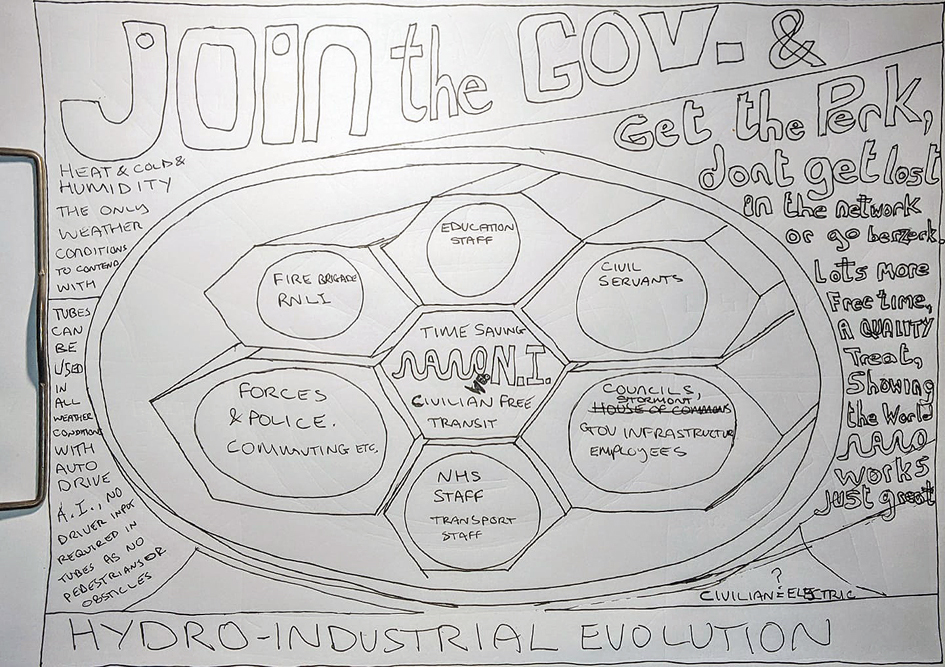 Join the GOV. &
Get the Perk,
dont get lost
in the network
or go berzerk!
Lots more
Free time,
A QUALITY
Treat,
Showing
the World
NANO
works
just great
HEAT & COLD &
HUMIDITY
THE ONLY
WEATHER
CONDITIONS
TO CONTEND
WITH
TUBES
CAN
BE
USED
IN
ALL
WEATHER
CONDITIONS
WITH
AUTO
DRIVE
A.I., NO
DRIVER INPUT
REQUIRED IN
TUBES AS NO
PEDESTRIANS OR
OBSTICLES
EDUCATION
STAFF
FIRE BRIGADE
RNLI
CIVIL
SERVANTS
TIME SAVING
NANO N.I.
CIVILIAN FREE
TRANSIT
FORCES
& POLICE.
COMMUTING ETC.
COUNCILS,
STORMONT,
HOUSE OF COMMONS
GOV INFRASTRUCTUR
EMPLOYEES
NHS
STAFF
TRANSPORT
STAFF
?
CIVILIAN = ELECTRIC
HYDRO-INDUSTRIAL EVOLUTION